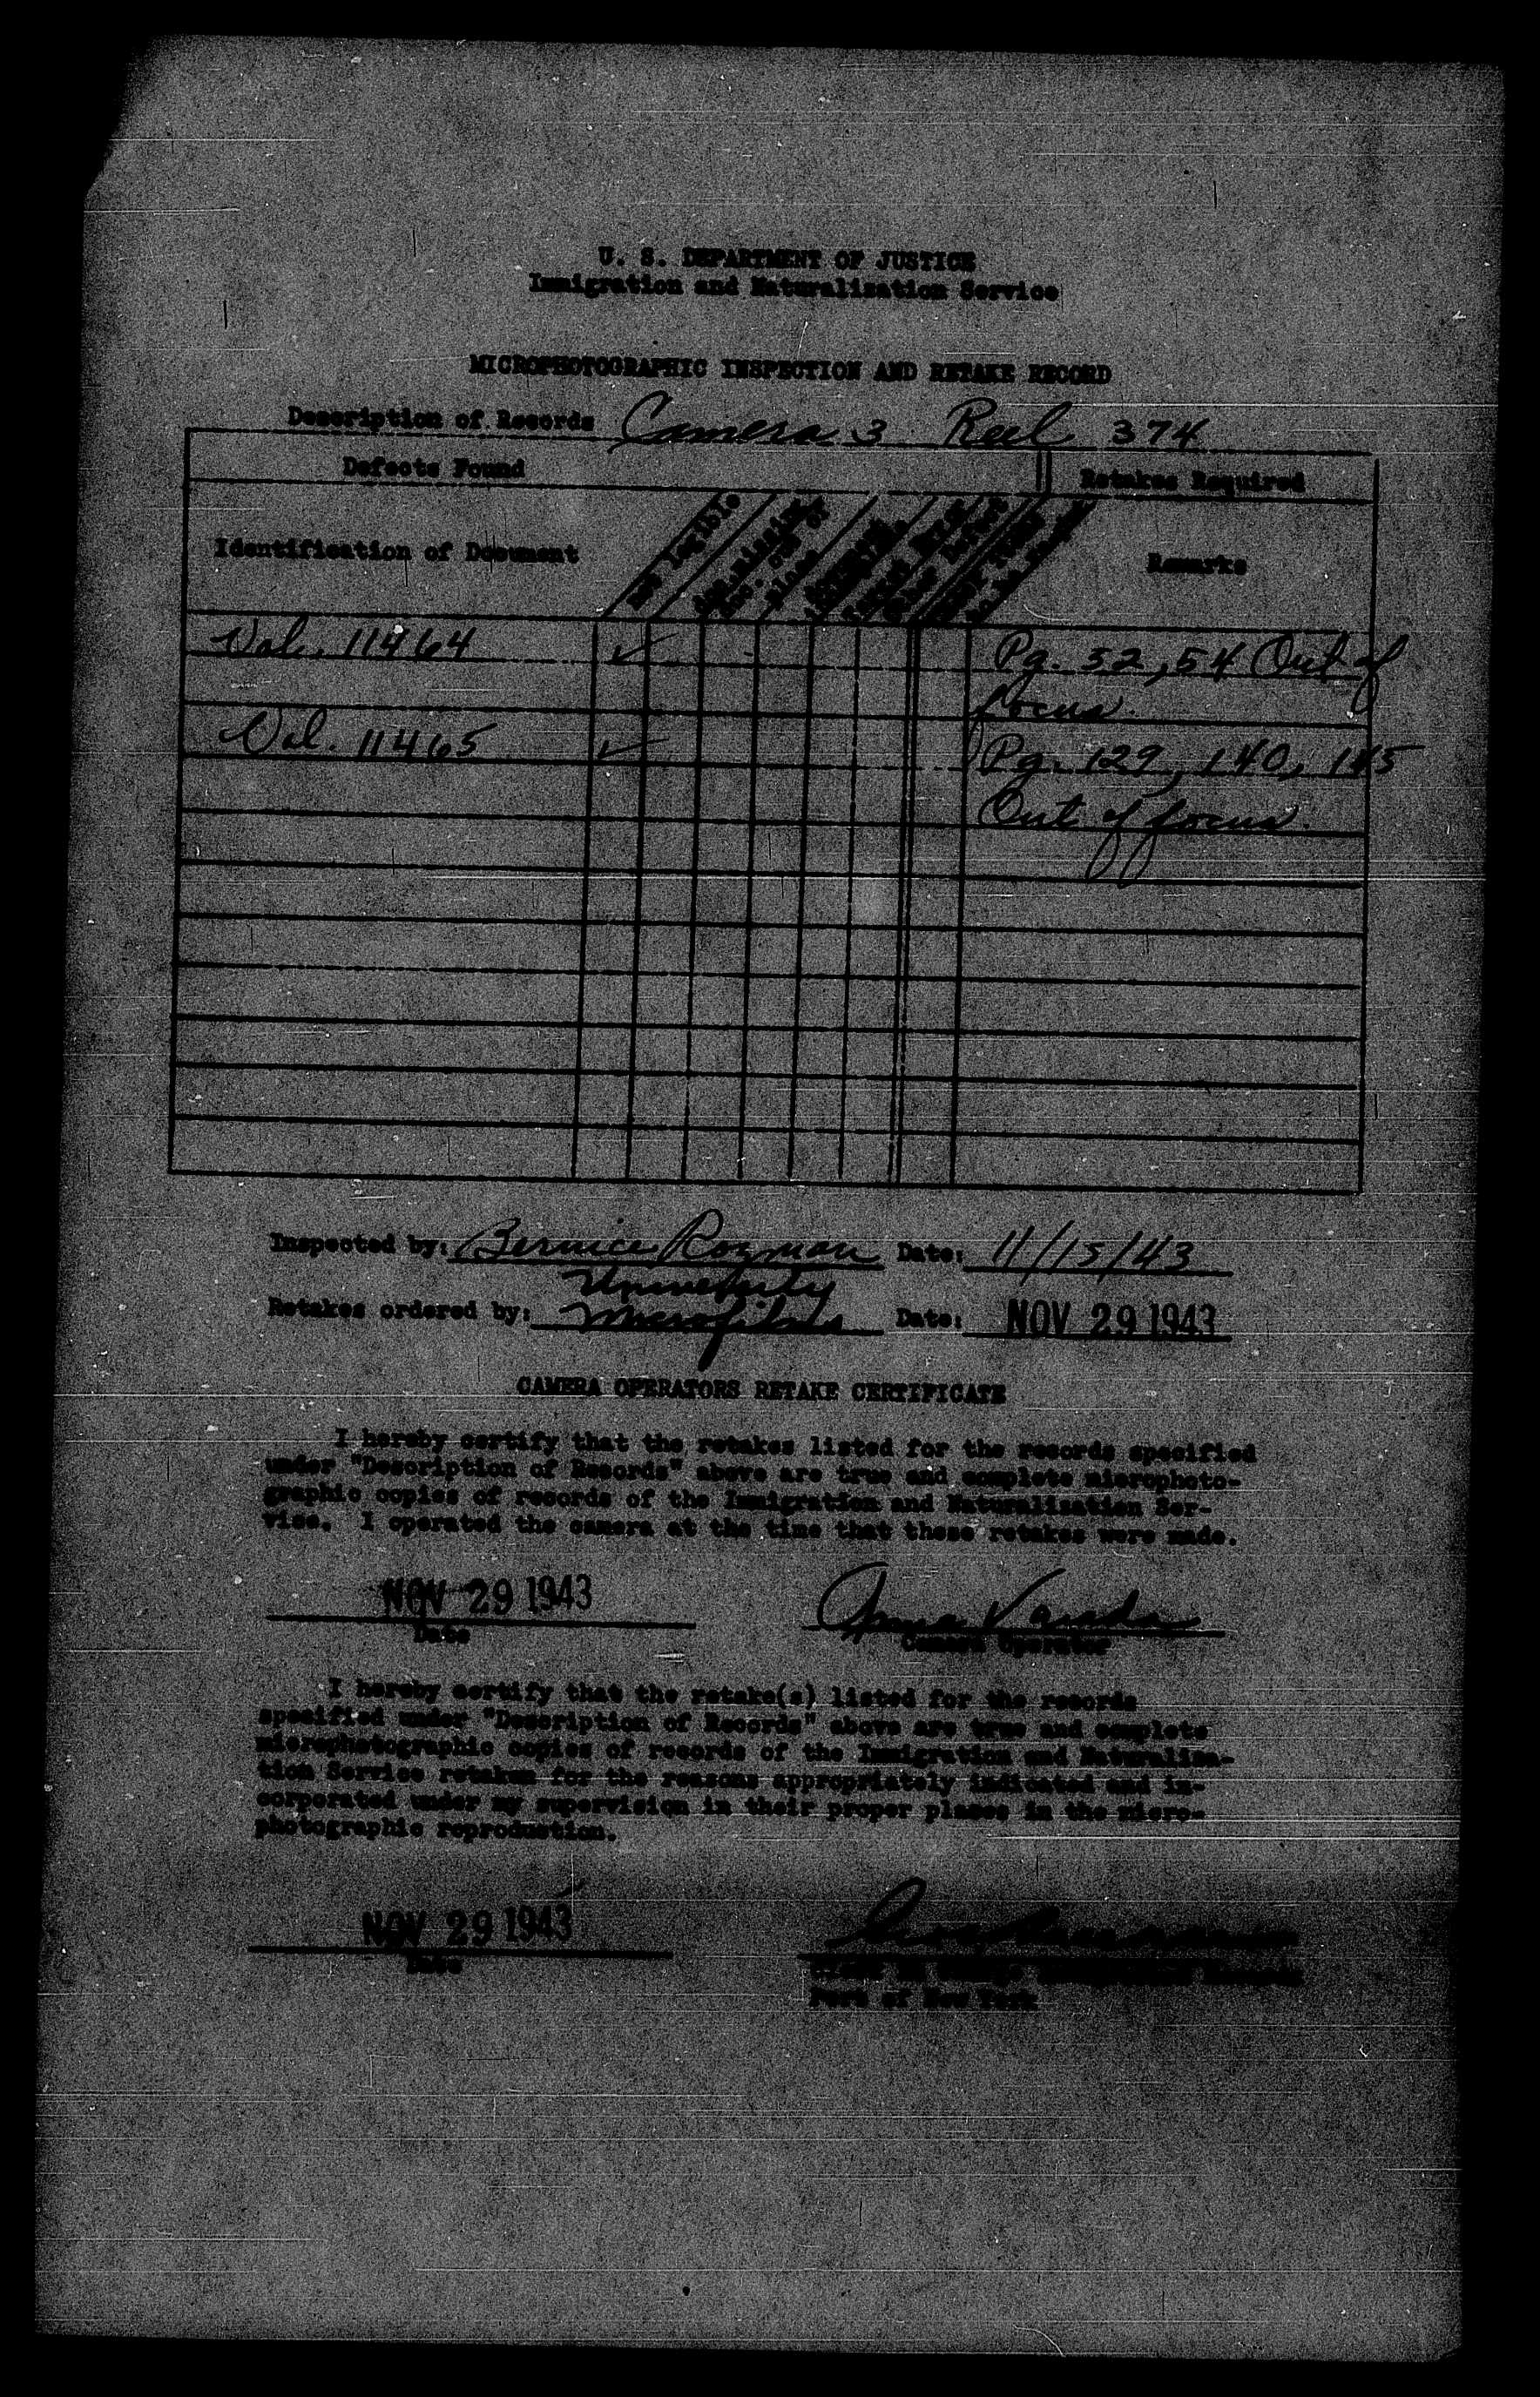 U. S. DEPARTMENT OF JUSTICE
Immigration and Naturalization Service
MICROPHOTOGRAPHIC INSPECTION AND RETAKE RECORD
Description of Records Camera 3 Reel 374
Defects Found Retakes Required
Identification of Document Not legible Remarks
Vol. 11464 ✓ Pg. 52, 54 Out of
focus.
Vol. 11465 ✓ Pg. 129, 140, 145
Out of focus.
Inspected by: Bernice Rozman Date: 11/15/43
University
Retakes ordered by: Microfilms Date: NOV 29 1943
CAMERA OPERATORS RETAKE CERTIFICATE
I hereby certify that the retakes listed for the records specified
under "Description of Records" above are true and complete microphoto-
graphic copies of records of the Immigration and Naturalization Ser-
vice. I operated the camera at the time that these retakes were made.
NOV 29 1943 Anna
Date Camera Operator
I hereby certify that the retake(s) listed for the records
specified under "Description of Records" above are true and complete
microphotographic copies of records of the Immigration and Naturaliza-
tion Service retaken for the reasons appropriately indicated and in-
corporated under my supervision in their proper places in the micro-
photographic reproduction.
NOV 29 1943
Date
Port of New York